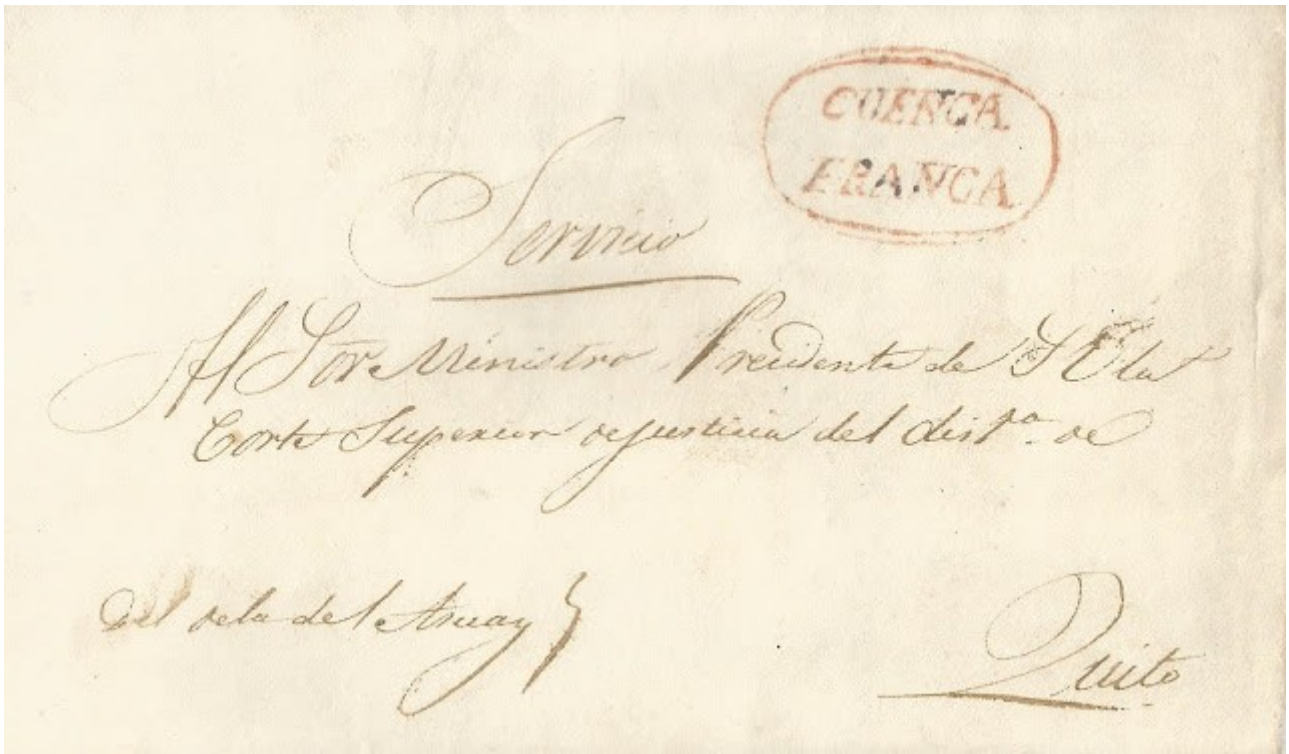 CUENCA
FRANCA
Servicio
Al Sor Ministro Precidente de S E la
Corte Superior de justicia del disto. de
Del de la del Asuay
Quito